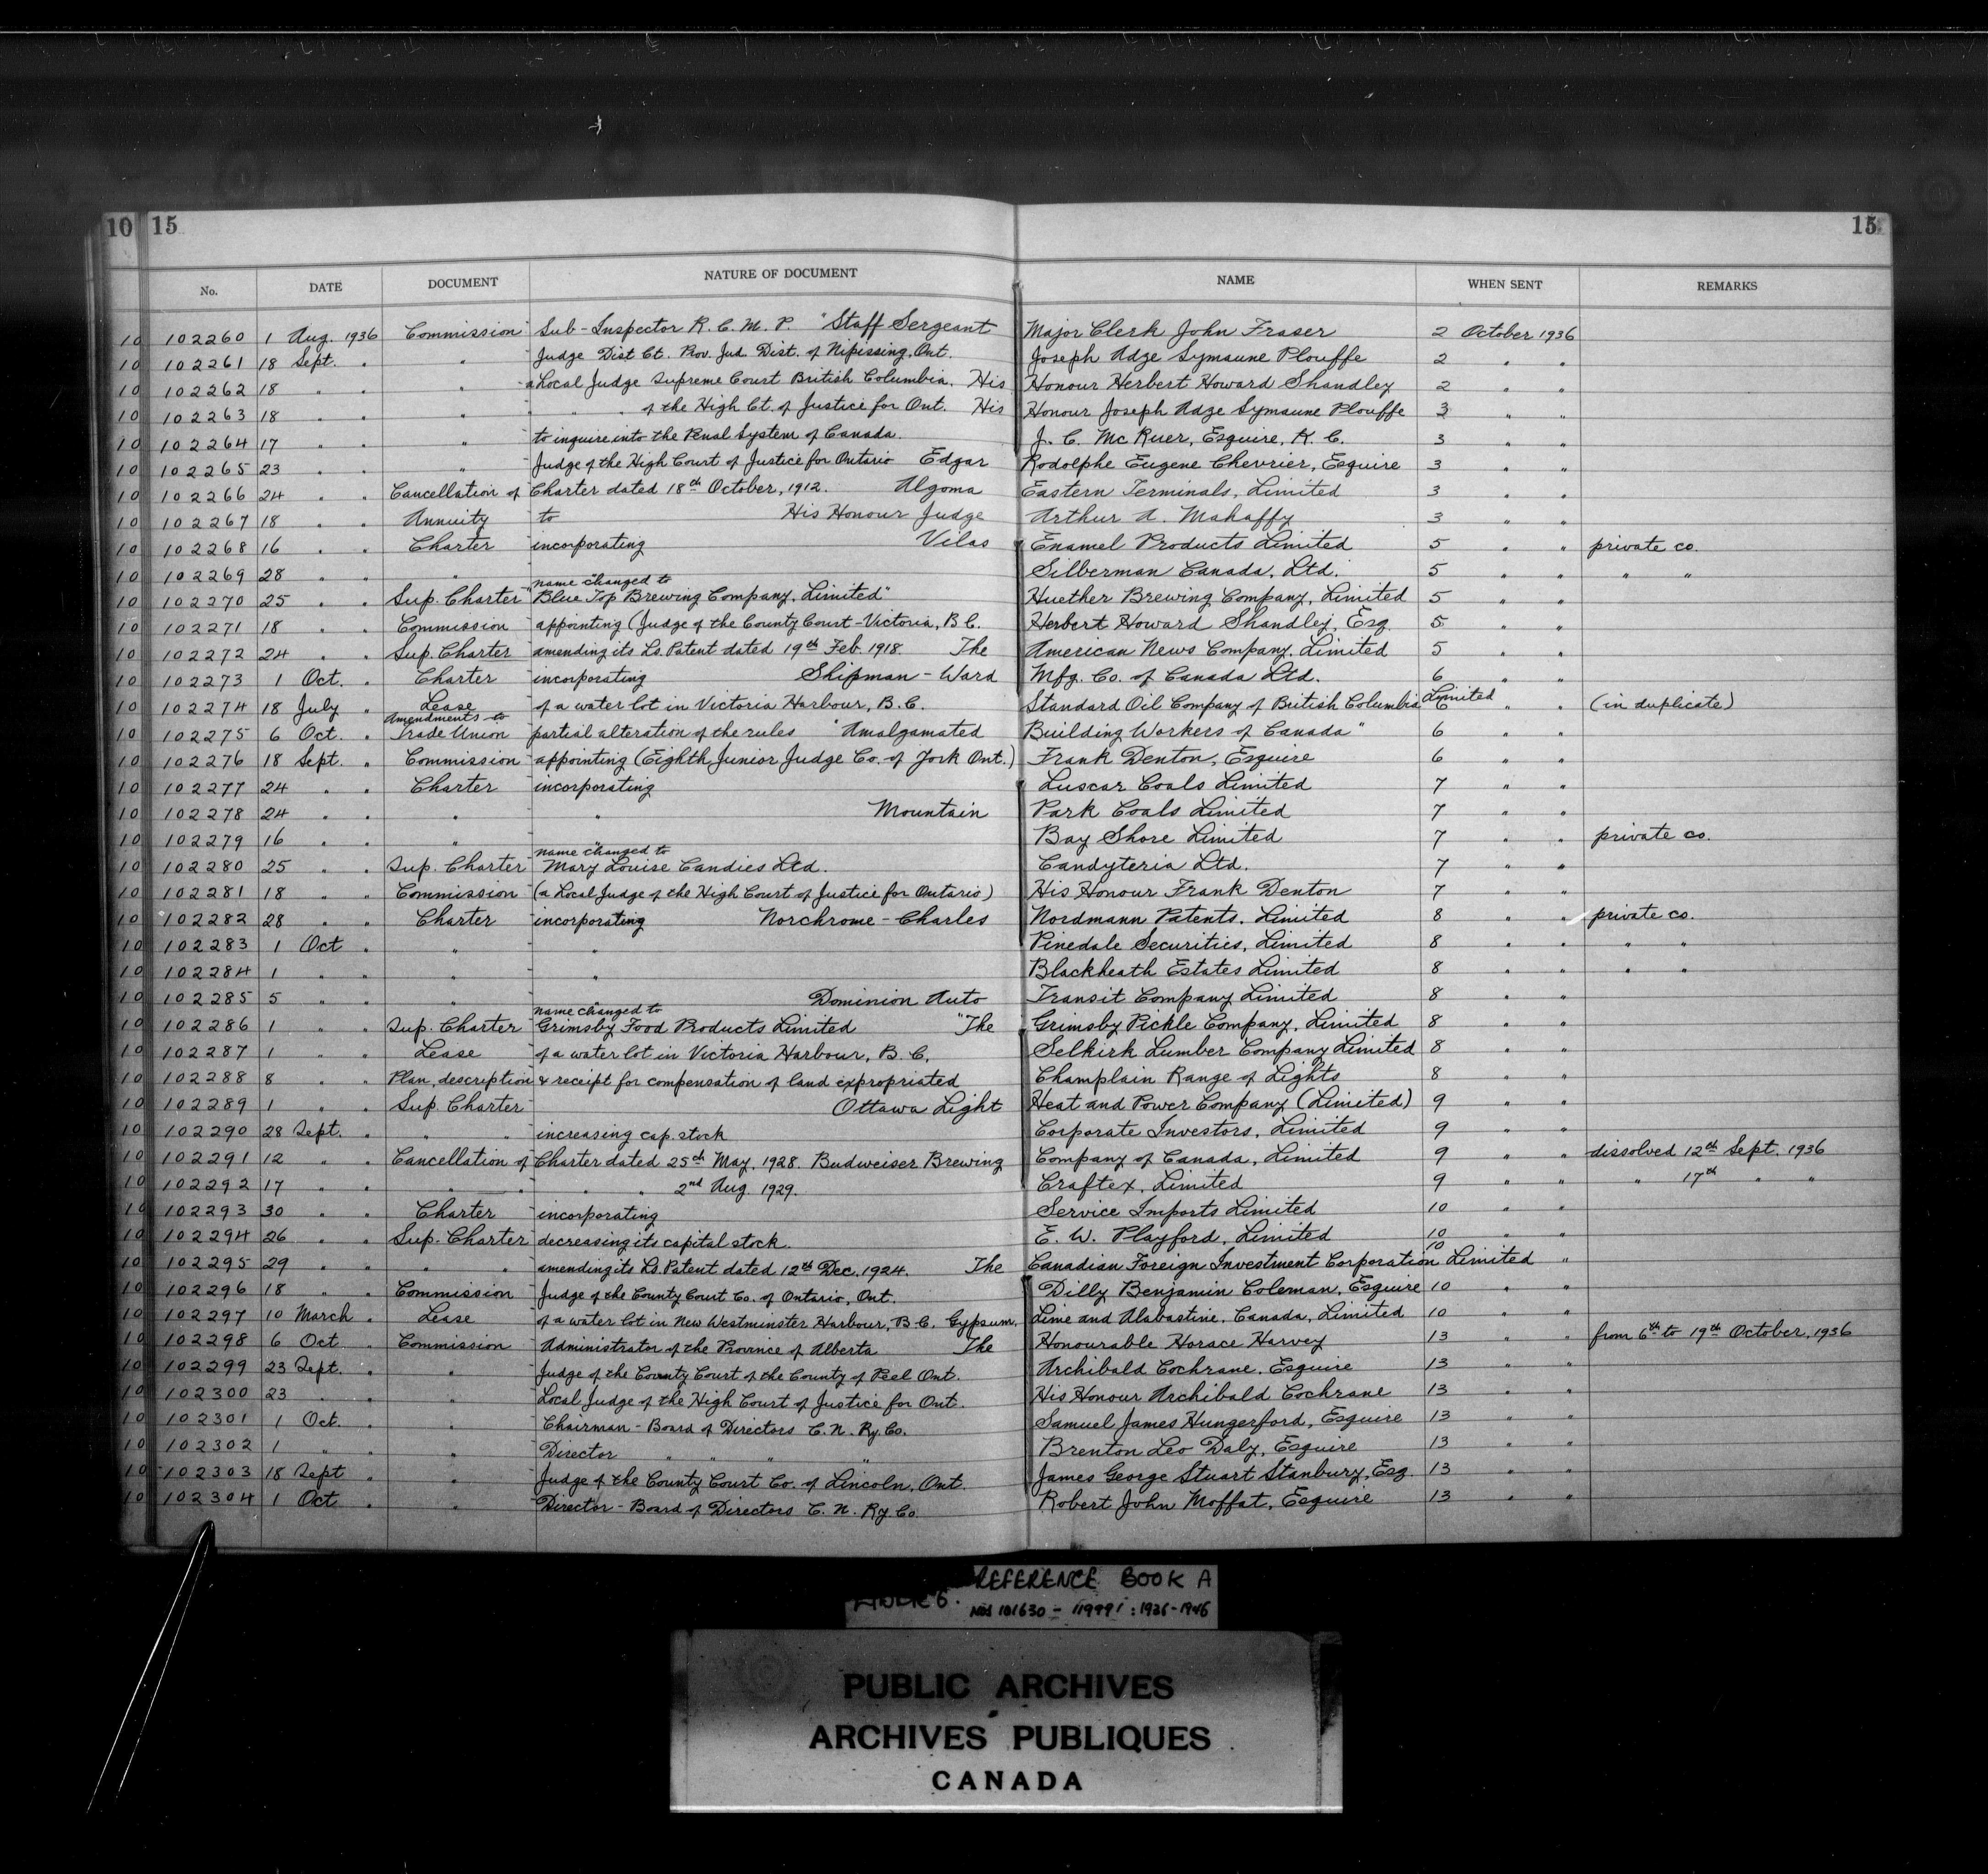 10 15 15
No. DATE DOCUMENT NATURE OF DOCUMENT NAME WHEN SENT REMARKS
10 102260 1 Aug. 1936 Commission Sub-Inspector R.C.M.P. "Staff Sergeant Major Clerk John Fraser 2 October 1936
10 102261 18 Sept. " " Judge Dist Ct. Prov. Jud. Dist. of Nipissing, Ont. Joseph Adze Symaune Plouffe 2 " "
10 102262 18 " " " a Local Judge Supreme Court British Columbia. His Honour Herbert Howard Shandley 2 " "
10 102263 18 " " " " " of the High Ct. of Justice for Ont. His Honour Joseph Adze Symaune Plouffe 3 " "
10 102264 17 " " " to inquire into the Penal System of Canada. J. C. McRuer, Esquire, K.C. 3 " "
10 102265 23 " " " Judge of the High Court of Justice for Ontario Edgar Rodolphe Eugene Chevrier, Esquire 3 " "
10 102266 24 " " Cancellation of Charter dated 18th October, 1912. Algoma Eastern Terminals, Limited 3 " "
10 102267 18 " " Annuity to His Honour Judge Arthur A. Mahaffy 3 " "
10 102268 16 " " Charter incorporating Vilas Enamel Products Limited 5 " " private co.
10 102269 28 " " " " Silberman Canada, Ltd. 5 " " " "
name changed to
10 102270 25 " " Sup. Charter "Blue Top Brewing Company, Limited" Huether Brewing Company, Limited 5 " "
10 102271 18 " " Commission appointing (Judge of the County Court-Victoria, B.C. Herbert Howard Shandley, Esq. 5 " "
10 102272 24 " " Sup. Charter amending its Ls. Patent dated 19th Feb. 1918. The American News Company, Limited 5 " "
10 102273 1 Oct. " Charter incorporating Shipman-Ward Mfg. Co. of Canada Ltd. 6 " "
10 102274 18 July " Lease of a water lot in Victoria Harbour, B.C. Standard Oil Company of British Columbia Limited 6 " " (in duplicate)
Amendments to
10 102275 6 Oct. " Trade Union partial alteration of the rules "Amalgamated Building Workers of Canada" 6 " "
10 102276 18 Sept. " Commission appointing (Eighth Junior Judge Co. of York Ont.) Frank Denton, Esquire 6 " "
10 102277 24 " " Charter incorporating Luscar Coals Limited 7 " "
10 102278 24 " " " " Mountain Park Coals Limited 7 " "
10 102279 16 " " " " Bay Shore Limited 7 " " private co.
name changed to
10 102280 25 " " Sup. Charter Mary Louise Candies Ltd. Candyteria Ltd. 7 " "
10 102281 18 " " Commission (a Local Judge of the High Court of Justice for Ontario) His Honour Frank Denton 7 " "
10 102282 28 " " Charter incorporating Norchrome-Charles Nordmann Patents, Limited 8 " " private co.
10 102283 1 Oct " " " Pinedale Securities, Limited 8 " " " "
10 102284 1 " " " " Blackheath Estates Limited 8 " " " "
10 102285 5 " " " " Dominion Auto Transit Company Limited 8 " "
name changed to
10 102286 1 " " Sup. Charter Grimsby Food Products Limited "The Grimsby Pickle Company, Limited 8 " "
10 102287 1 " " Lease of a water lot in Victoria Harbour, B.C. Selkirk Lumber Company Limited 8 " "
10 102288 8 " " Plan, description & receipt for compensation of land expropriated Champlain Range of Lights 8 " "
10 102289 1 " " Sup. Charter Ottawa Light Heat and Power Company (Limited) 9 " "
10 102290 28 Sept. " " " increasing cap. stock Corporate Investors, Limited 9 " "
10 102291 12 " " Cancellation of Charter dated 25th May, 1928. Budweiser Brewing Company of Canada, Limited 9 " " dissolved 12th Sept. 1936
10 102292 17 " " " " " " 2nd Aug. 1929. Craftex, Limited 9 " " " 17th " "
10 102293 30 " " Charter incorporating Service Imports Limited 10 " "
10 102294 26 " " Sup. Charter decreasing its capital stock. E. W. Playford, Limited 10 " "
10 102295 29 " " " " amending its Ls. Patent dated 12th Dec. 1924. The Canadian Foreign Investment Corporation Limited 10 "
10 102296 18 " " Commission Judge of the County Court Co. of Ontario, Ont. Dilly Benjamin Coleman, Esquire 10 " "
10 102297 10 March " Lease of a water lot in New Westminster Harbour, B.C. Gypsum, Lime and Alabastine, Canada, Limited 10 " "
10 102298 6 Oct " Commission Administrator of the Province of Alberta The Honourable Horace Harvey 13 " " from 6th to 19th October, 1936
10 102299 23 Sept. " " Judge of the County Court of the County of Peel Ont. Archibald Cochrane, Esquire 13 " "
10 102300 23 " " " Local Judge of the High Court of Justice for Ont. His Honour Archibald Cochrane 13 " "
10 102301 1 Oct. " " Chairman-Board of Directors C.N. Ry. Co. Samuel James Hungerford, Esquire 13 " "
10 102302 1 " " " Director " " " " Brenton Leo Daly, Esquire 13 " "
10 102303 18 Sept " " Judge of the County Court Co. of Lincoln, Ont. James George Stuart Stanbury, Esq. 13 " "
10 102304 1 Oct " " Director-Board of Directors C.N. Ry. Co. Robert John Moffat, Esquire 13 " "
REFERENCE BOOK A
Nos 101630 - 119991 : 1936-1946
PUBLIC ARCHIVES
ARCHIVES PUBLIQUES
CANADA